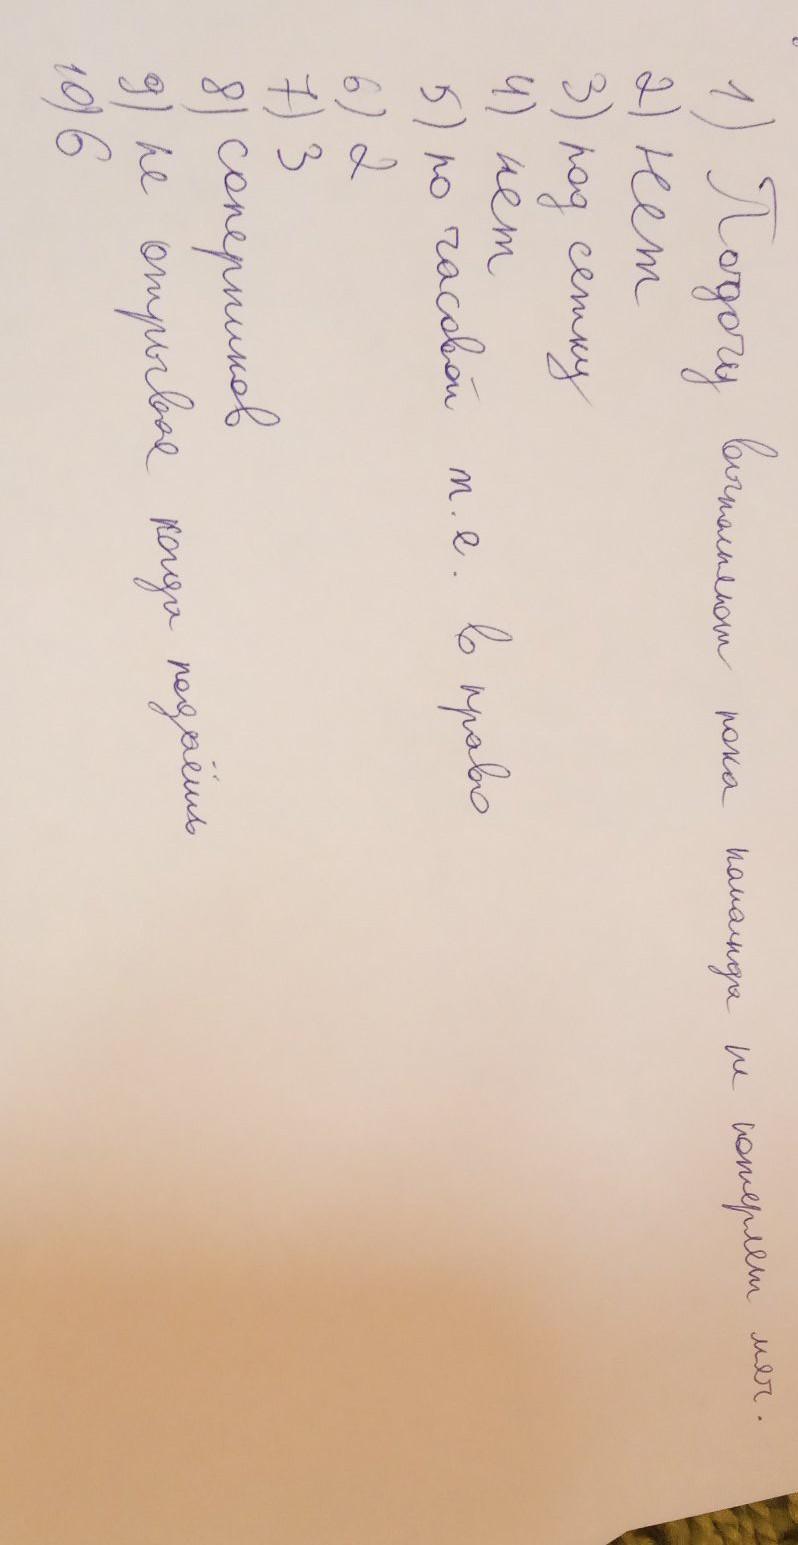 1) Подачу выполняют пока команда не потеряет мяч.
2) Нет
3) под сетку
4) нет
5) по часовой т.е. в право
6) 2
7) 3
8) соперников
9) не отрывая когда подаёшь
10) 6